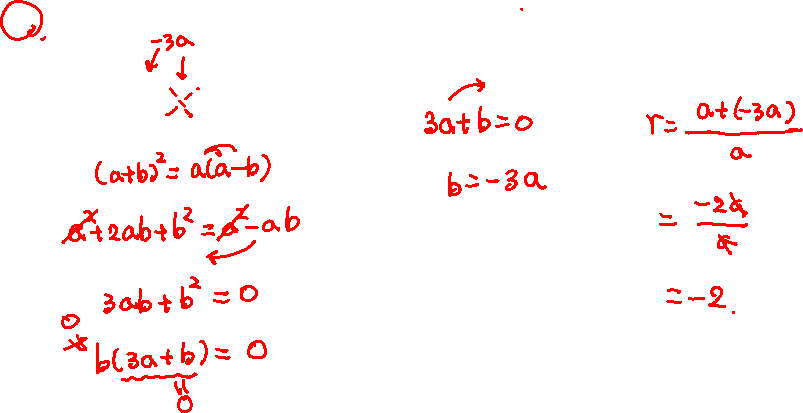 -3a
(a+b)² = a(a-b)
a²+2ab+b² = a²-ab
3ab+b² = 0
0
b(3a+b) = 0
0
3a+b=0
b=-3a
r = (a+(-3a))/a
= -2a/a
= -2.